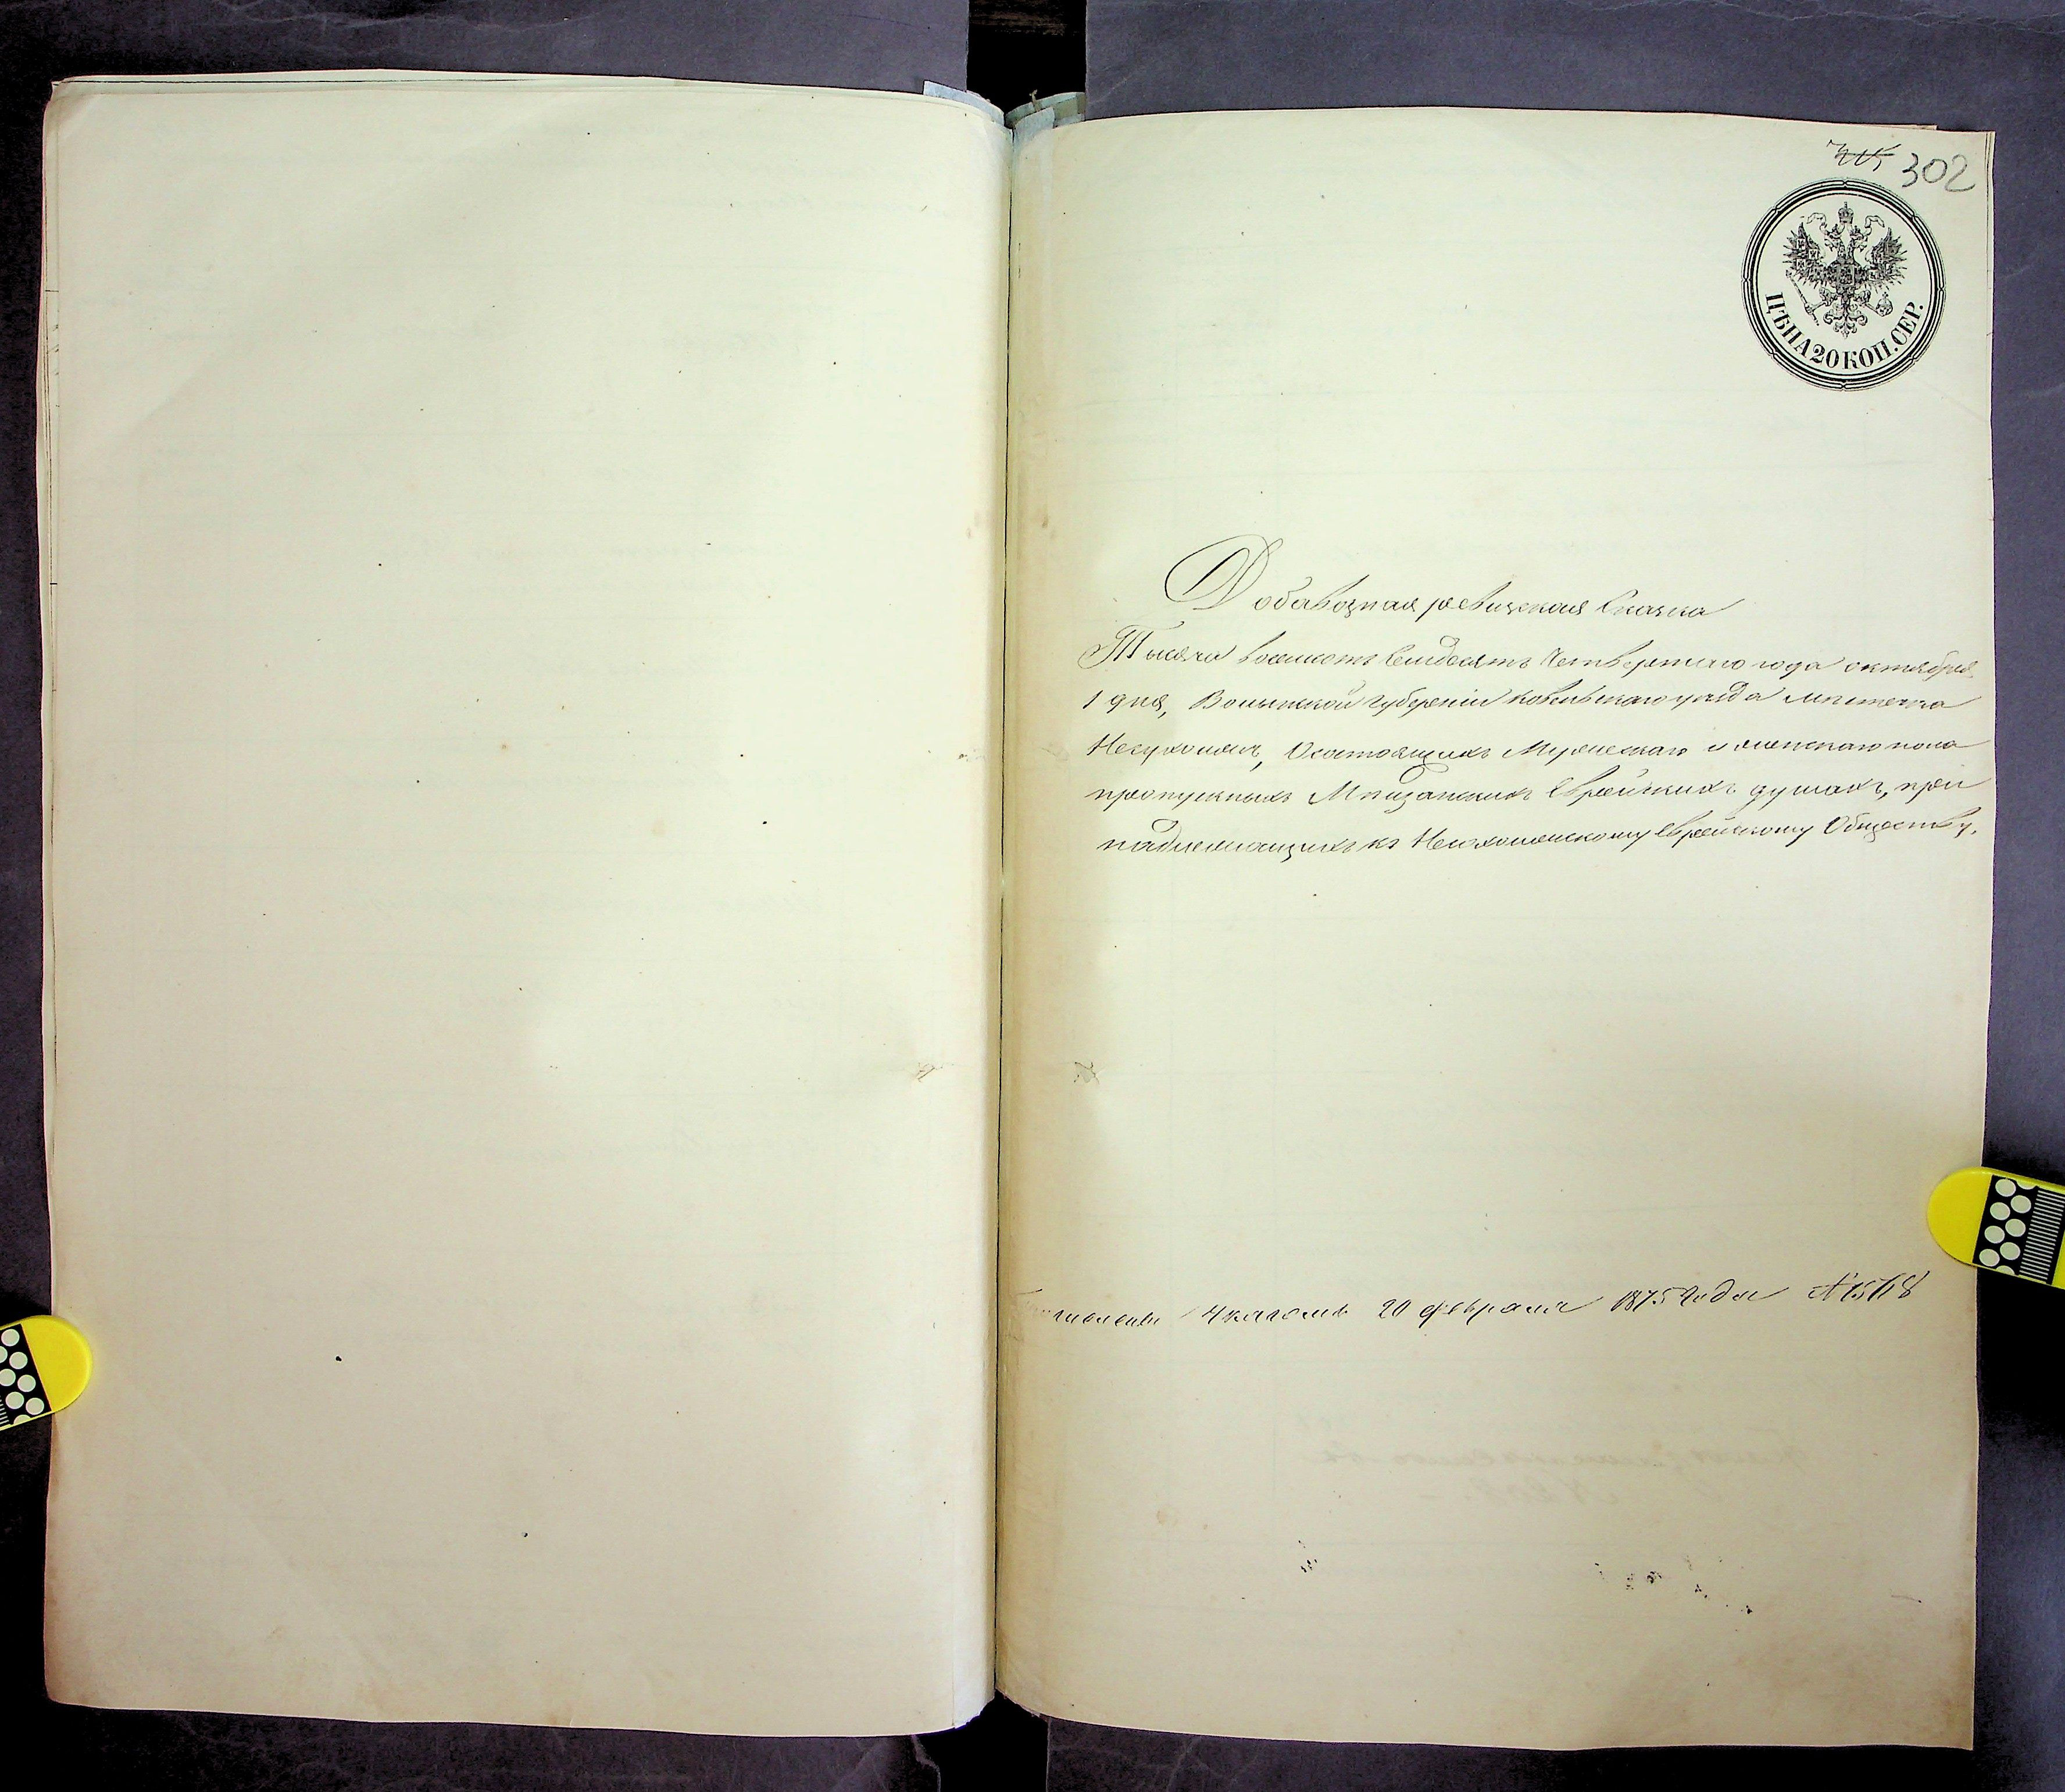 302
ЦѢНА 20 КОП. СЕР.
Добавочная ревизская Сказка
Тысяча восемсотъ Семдесятъ Четвертаго года октября
1 дня, Волынской губерніи Ковельскаго уезда мѣстечка
Несухоижъ, О состоящихъ Мужескаго и женскаго пола
пропускныхъ Мѣщанскихъ Еврейскихъ душахъ, при
надлежащихъ къ Несухоижскому Еврейскому Обществу.
Указомъ 20 февраля 1875 Года №